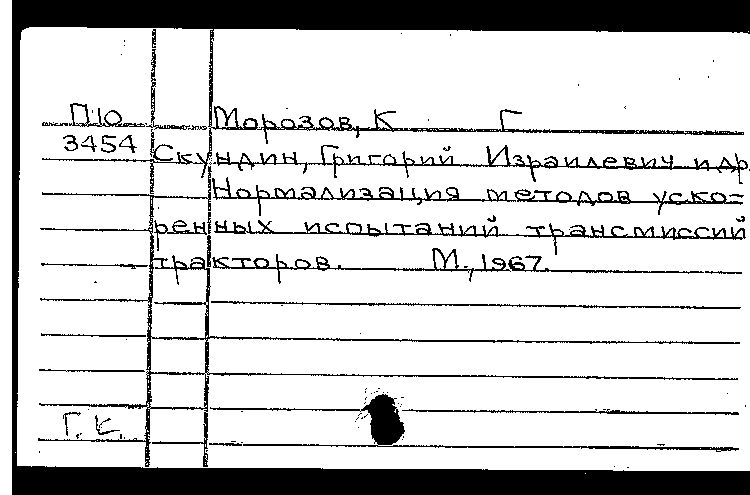 П10 Морозов, К Г
3454 Скундин, Григорий Израилевич и др.
Нормализация методов уско=
ренных испытаний трансмиссий
тракторов. М., 1967.
Г. К.